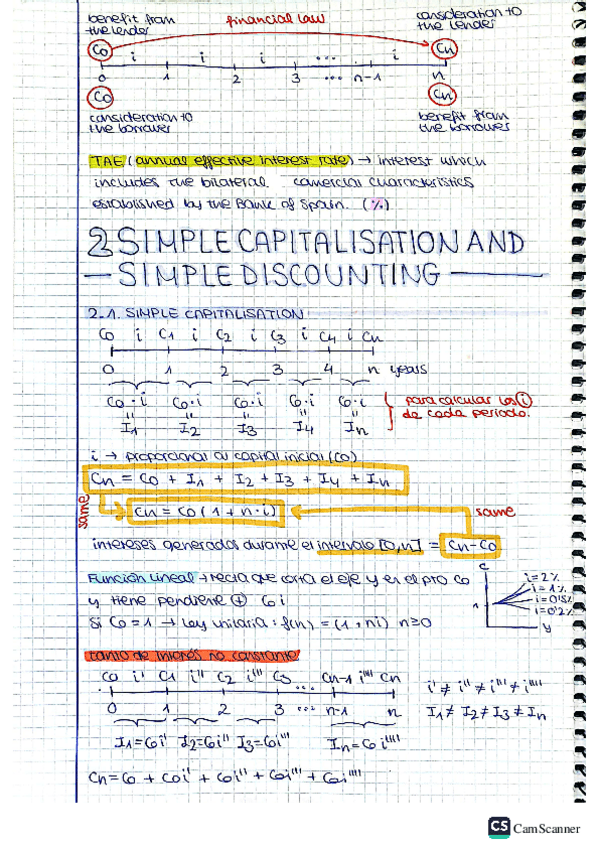 benefit from financial law consideration to
the lender the lender
Co i i i ... i Cn
0 1 2 3 ... n-1 n
Co Cn
consideration to benefit from
the borrower the borrower
TAE (annual effective interest rate) → interest which
includes the bilateral comercial characteristics
established by the Bank of Spain. (%)
2 SIMPLE CAPITALISATION AND
— SIMPLE DISCOUNTING —
2.1. SIMPLE CAPITALISATION
Co i C1 i C2 i C3 i C4 i Cn
0 1 2 3 4 n years
Co·i Co·i Co·i Co·i Co·i para calcular los i
" " " " " de cada periodo.
I1 I2 I3 I4 In
i → proporcional al capital inicial (Co)
Cn = Co + I1 + I2 + I3 + I4 + In
same
Cn = Co (1 + n·i) same
intereses generados durante el intervalo [0,n] = Cn-Co
Función lineal → recta que corta el eje y en el pto Co
y tiene pendiente ⊕ Co i
Si Co = 1 → Ley unitaria: f(n) = (1 + ni) n≥0
C
i=2%
i=1%
i=0'5%
i=0'2%
1
y
tanto de interés no constante
Co i' C1 i'' C2 i''' C3 ... Cn-1 i'''' Cn i' ≠ i'' ≠ i''' ≠ i''''
0 1 2 3 ... n-1 n I1 ≠ I2 ≠ I3 ≠ In
I1=Co i' I2=Co i'' I3=Co i''' In=Co i''''
Cn = Co + Co i' + Co i'' + Co i''' + Co i''''
CS CamScanner